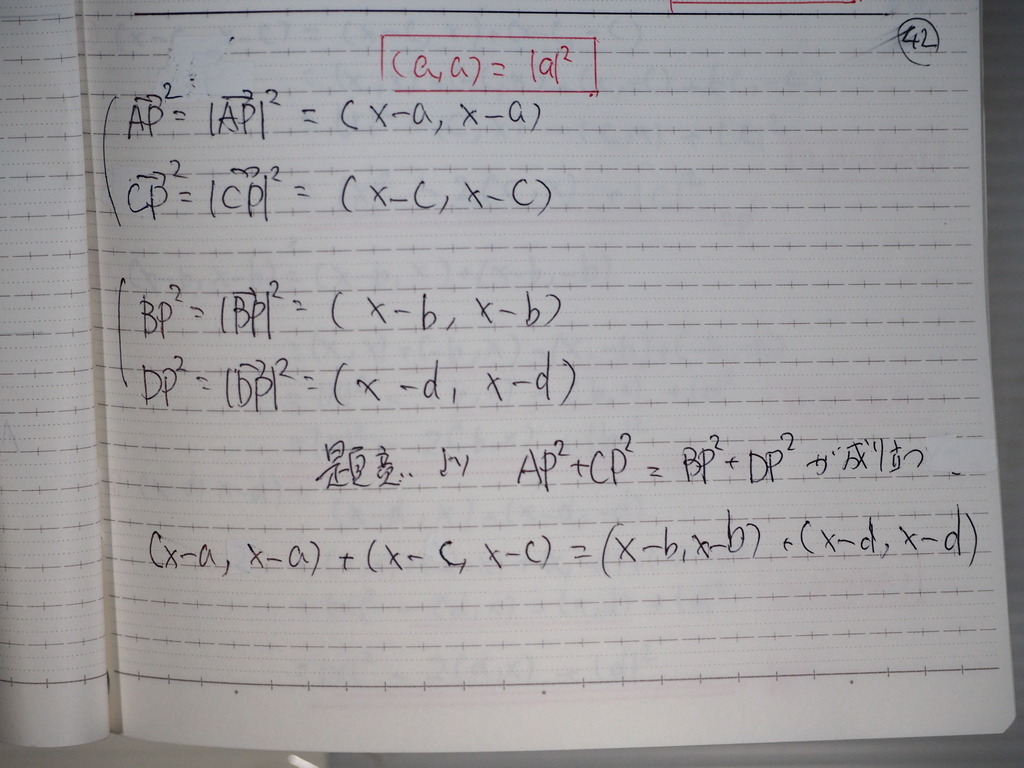 42
(a,a) = |a|²
AP² = |AP|² = (x-a, x-a)
CP² = |CP|² = (x-c, x-c)
BP² = |BP|² = (x-b, x-b)
DP² = |DP|² = (x-d, x-d)
題意より AP²+CP² = BP²+DP² が成り立つ
(x-a, x-a) + (x-c, x-c) = (x-b, x-b) + (x-d, x-d)